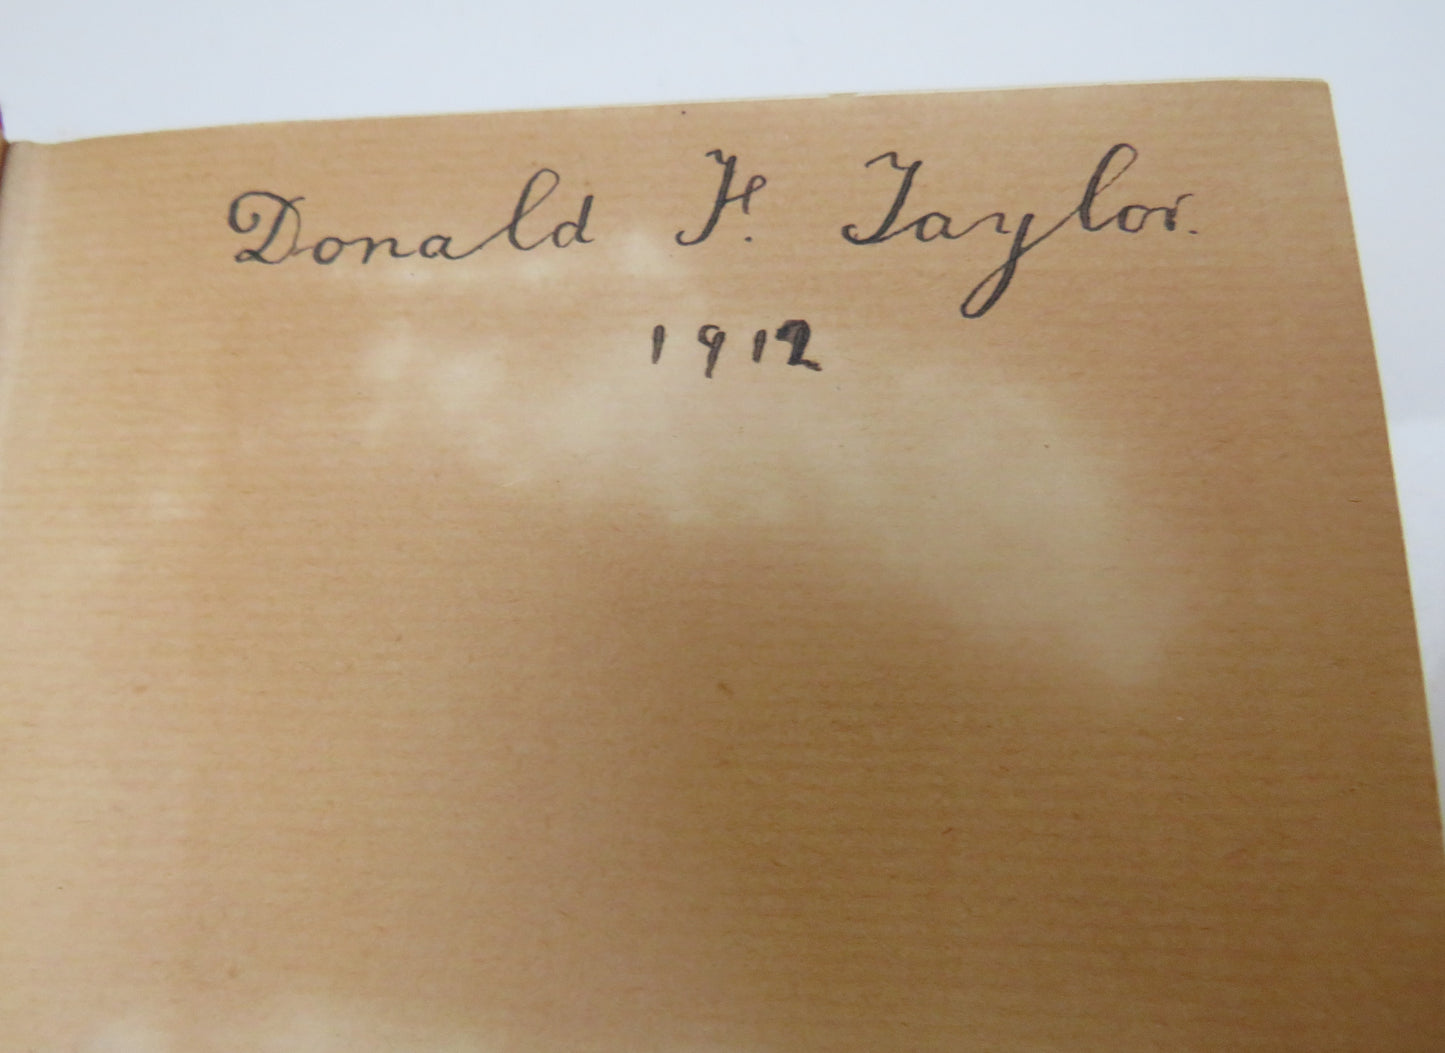 Donald F. Taylor.
1912